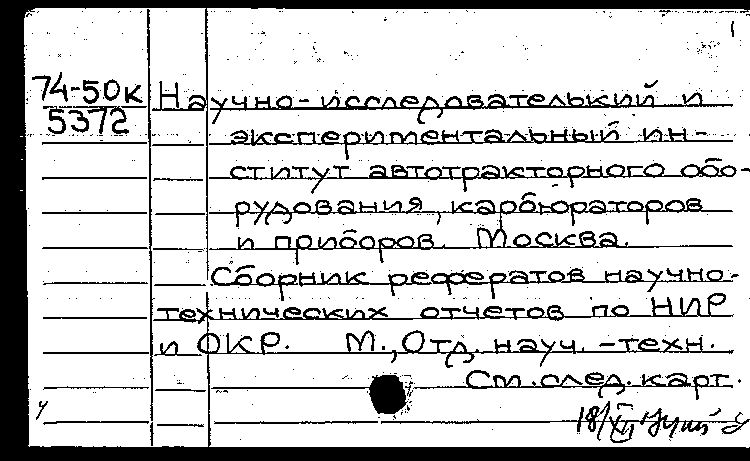 1
74-50к
5372
Научно-исследователький и
экспериментальный ин-
ститут автотракторного обо-
рудования, карбюраторов
и приборов. Москва.
Сборник рефератов научно-
технических отчетов по НИР
и ОКР. М., Отд. науч.-техн.
См. след. карт.
у
18/XII